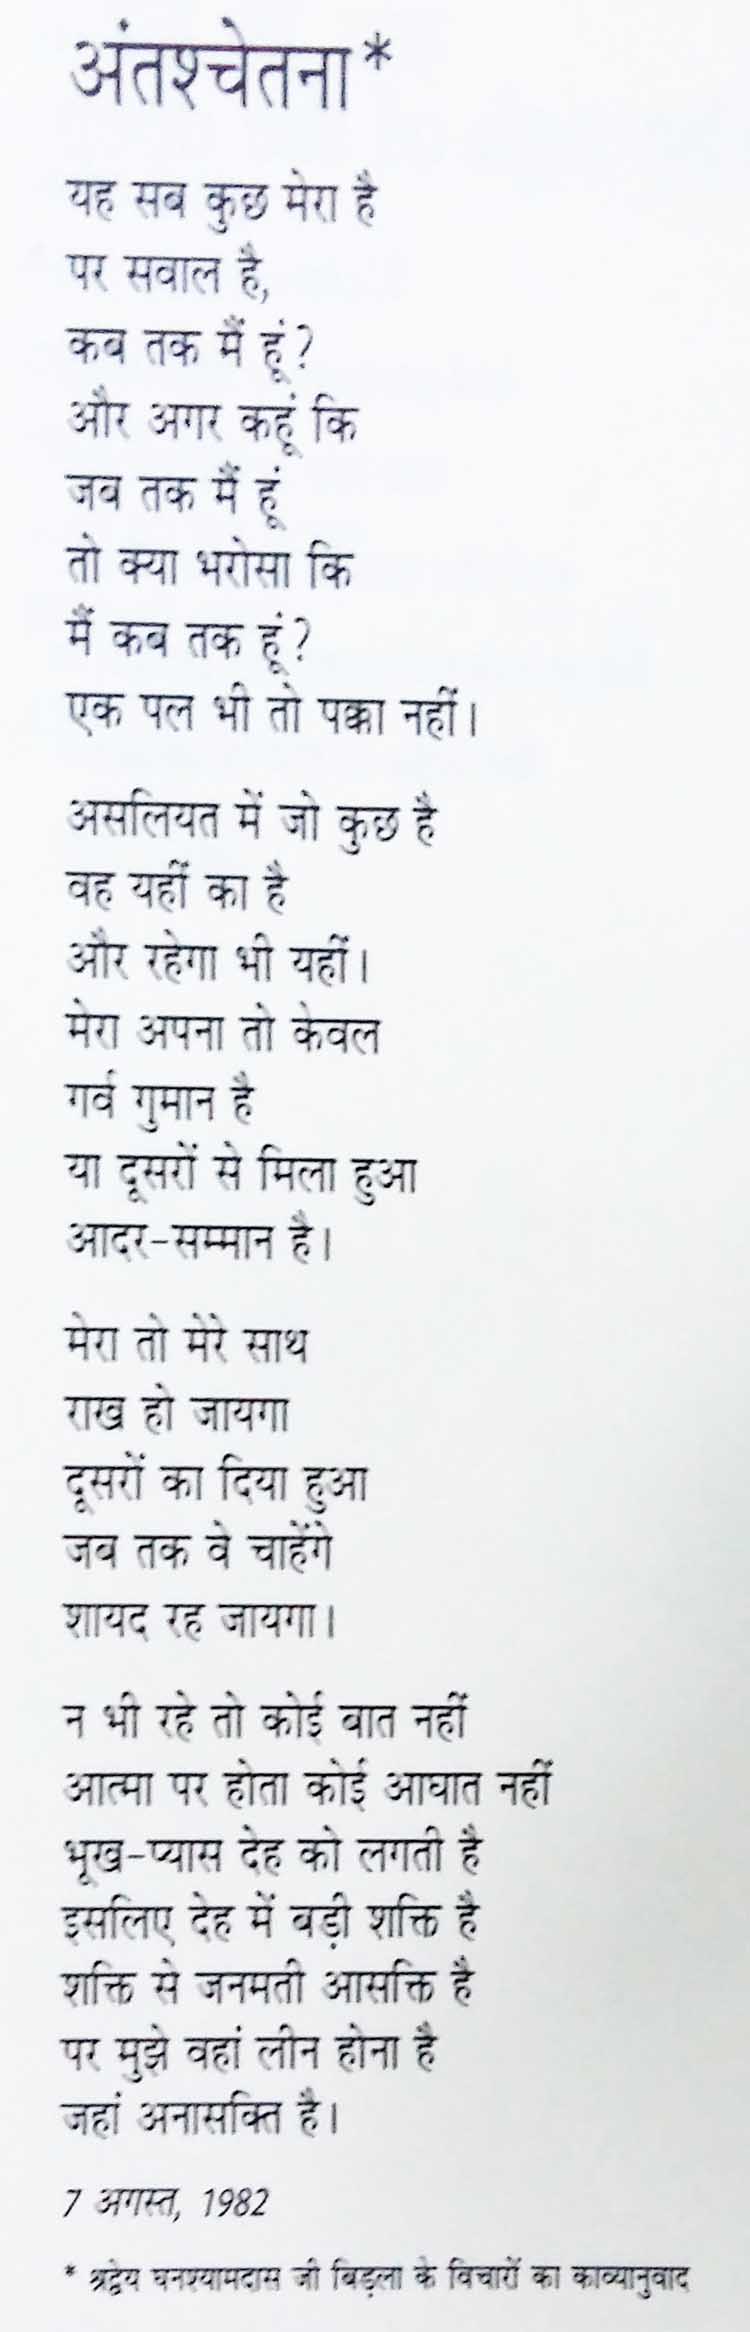 अंतश्चेतना*
यह सब कुछ मेरा है
पर सवाल है,
कब तक मैं हूं?
और अगर कहूं कि
जब तक मैं हूं
तो क्या भरोसा कि
मैं कब तक हूं?
एक पल भी तो पक्का नहीं।
असलियत में जो कुछ है
वह यहीं का है
और रहेगा भी यहीं।
मेरा अपना तो केवल
गर्व गुमान है
या दूसरों से मिला हुआ
आदर-सम्मान है।
मेरा तो मेरे साथ
राख हो जायगा
दूसरों का दिया हुआ
जब तक वे चाहेंगे
शायद रह जायगा।
न भी रहे तो कोई बात नहीं
आत्मा पर होता कोई आघात नहीं
भूख-प्यास देह को लगती है
इसलिए देह में बड़ी शक्ति है
शक्ति से जनमती आसक्ति है
पर मुझे वहां लीन होना है
जहां अनासक्ति है।
7 अगस्त, 1982
* श्रद्धेय घनश्यामदास जी बिड़ला के विचारों का काव्यानुवाद